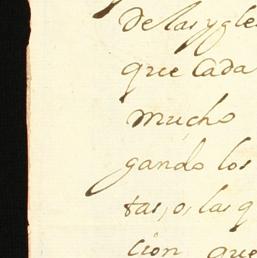 de las ygle
que Cada
mucho
gando los
tas, o, las q
cion que